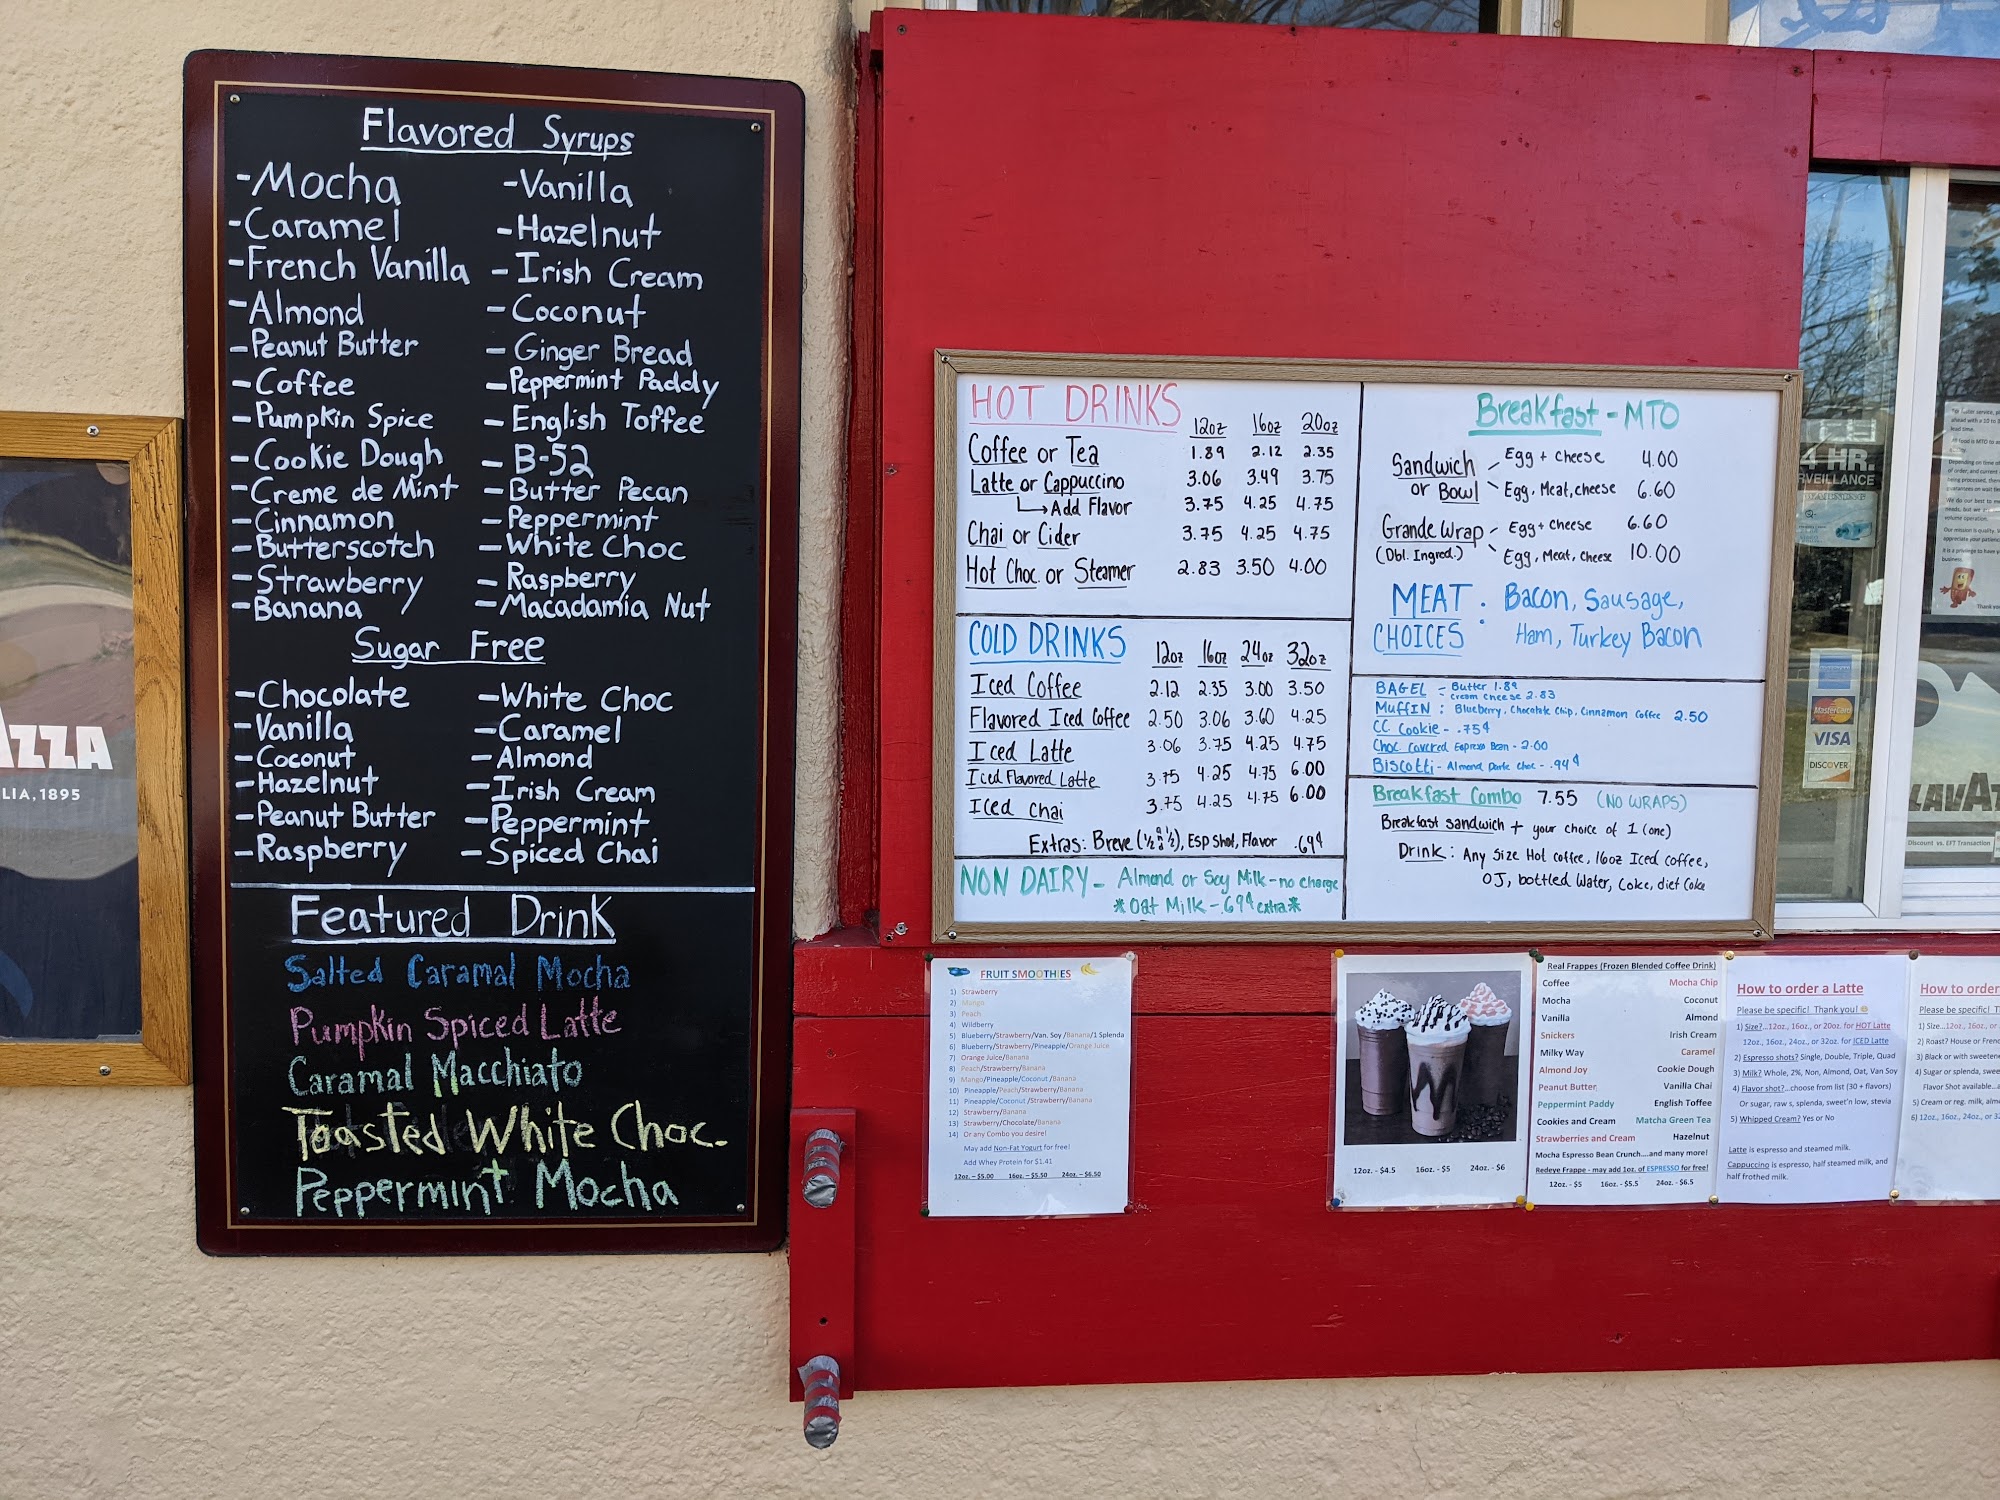 Flavored Syrups
-Mocha -Vanilla
-Caramel -Hazelnut
-French Vanilla -Irish Cream
-Almond -Coconut
-Peanut Butter -Ginger Bread
-Coffee -Peppermint Paddy
-Pumpkin Spice -English Toffee
-Cookie Dough -B-52
-Creme de Mint -Butter Pecan
-Cinnamon -Peppermint
-Butterscotch -White Choc
-Strawberry -Raspberry
-Banana -Macadamia Nut
Sugar Free
-Chocolate -White Choc
-Vanilla -Caramel
-Coconut -Almond
-Hazelnut -Irish Cream
-Peanut Butter -Peppermint
-Raspberry -Spiced Chai
Featured Drink
Salted Caramal Mocha
Pumpkin Spiced Latte
Caramal Macchiato
Toasted White Choc.
Peppermint Mocha
AZZA
LIA, 1895
HOT DRINKS
12oz 16oz 20oz
Coffee or Tea 1.89 2.12 2.35
Latte or Cappuccino 3.06 3.49 3.75
Add Flavor 3.75 4.25 4.75
Chai or Cider 3.75 4.25 4.75
Hot Choc. or Steamer 2.83 3.50 4.00
COLD DRINKS 12oz 16oz 24oz 32oz
Iced Coffee 2.12 2.35 3.00 3.50
Flavored Iced Coffee 2.50 3.06 3.60 4.25
Iced Latte 3.06 3.75 4.25 4.75
Iced Flavored Latte 3.75 4.25 4.75 6.00
Iced Chai 3.75 4.25 4.75 6.00
Extras: Breve (½ & ½), Esp Shot, Flavor .69¢
NON DAIRY - Almond or Soy Milk - no charge
*Oat Milk - .69¢ extra*
Breakfast - MTO
Sandwich or Bowl
Egg + Cheese 4.00
Egg, Meat, cheese 6.60
Grande Wrap - Egg + Cheese 6.60
(Dbl. Ingred.) Egg, Meat, Cheese 10.00
MEAT CHOICES : Bacon, Sausage,
Ham, Turkey Bacon
BAGEL - Butter 1.89
Cream Cheese 2.83
MUFFIN : Blueberry, Chocolate Chip, Cinnamon Coffee 2.50
CC Cookie - .75¢
Choc Covered Espresso Bean - 2.00
Biscotti - Almond Dark Choc - .94¢
Breakfast Combo 7.55 (NO WRAPS)
Breakfast sandwich + your choice of 1 (one)
Drink : Any Size Hot coffee, 16oz Iced coffee,
OJ, bottled Water, Coke, diet Coke
FRUIT SMOOTHIES
1) Strawberry
2) Mango
3) Peach
4) Wildberry
5) Blueberry/Strawberry/Van. Soy /Banana/1 Splenda
6) Blueberry/Strawberry/Pineapple/Orange Juice
7) Orange Juice/Banana
8) Peach/Strawberry/Banana
9) Mango/Pineapple/Coconut /Banana
10) Pineapple/Peach/Strawberry/Banana
11) Pineapple/Coconut /Strawberry/Banana
12) Strawberry/Banana
13) Strawberry/Chocolate/Banana
14) Or any Combo you desire!
May add Non-Fat Yogurt for free!
Add Whey Protein for $1.41
12oz. – $5.00 16oz. – $5.50 24oz. – $6.50
12oz. - $4.5 16oz. - $5 24oz. - $6
Real Frappes (Frozen Blended Coffee Drink)
Coffee Mocha Chip
Mocha Coconut
Vanilla Almond
Snickers Irish Cream
Milky Way Caramel
Almond Joy Cookie Dough
Peanut Butter Vanilla Chai
Peppermint Paddy English Toffee
Cookies and Cream Matcha Green Tea
Strawberries and Cream Hazelnut
Mocha Espresso Bean Crunch....and many more!
Redeye Frappe - may add 1oz. of ESPRESSO for free!
12oz. - $5 16oz. - $5.5 24oz. - $6.5
How to order a Latte
Please be specific! Thank you!
1) Size?...12oz., 16oz., or 20oz. for HOT Latte
12oz., 16oz., 24oz., or 32oz. for ICED Latte
2) Espresso shots? Single, Double, Triple, Quad
3) Milk? Whole, 2%, Non, Almond, Oat, Van Soy
4) Flavor shot?...choose from list (30 + flavors)
Or sugar, raw s, splenda, sweet'n low, stevia
5) Whipped Cream? Yes or No
Latte is espresso and steamed milk.
Cappuccino is espresso, half steamed milk, and
half frothed milk.
How to order
Please be specific!
1) Size...12oz., 16oz., or
2) Roast? House or
3) Black or with
4) Sugar or splenda,
Flavor Shot available...
5) Cream or reg. milk,
6) 12oz., 16oz., 24oz., or
4 HR.
VEILLANCE
MasterCard
VISA
DISCOVER
LAVA
Discount vs. EFT Transaction